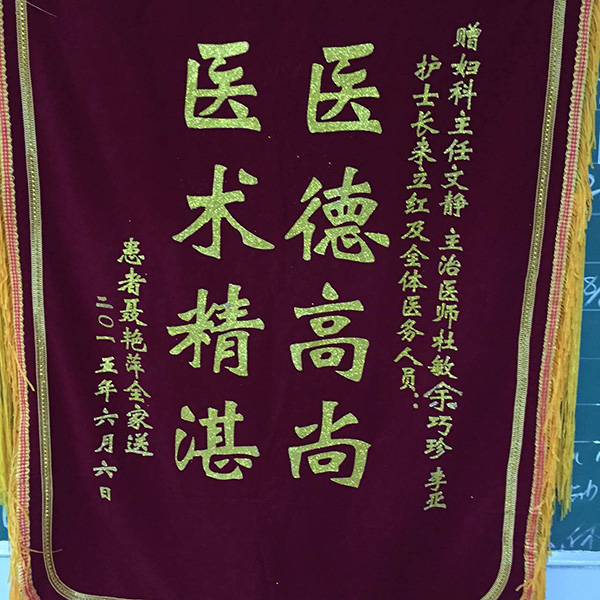 赠妇科主任文静 主治医师杜敏 余巧珍 李亚
护士长来立红及全体医务人员:
医德高尚
医术精湛
患者聂艳萍全家送
二〇一五年六月六日